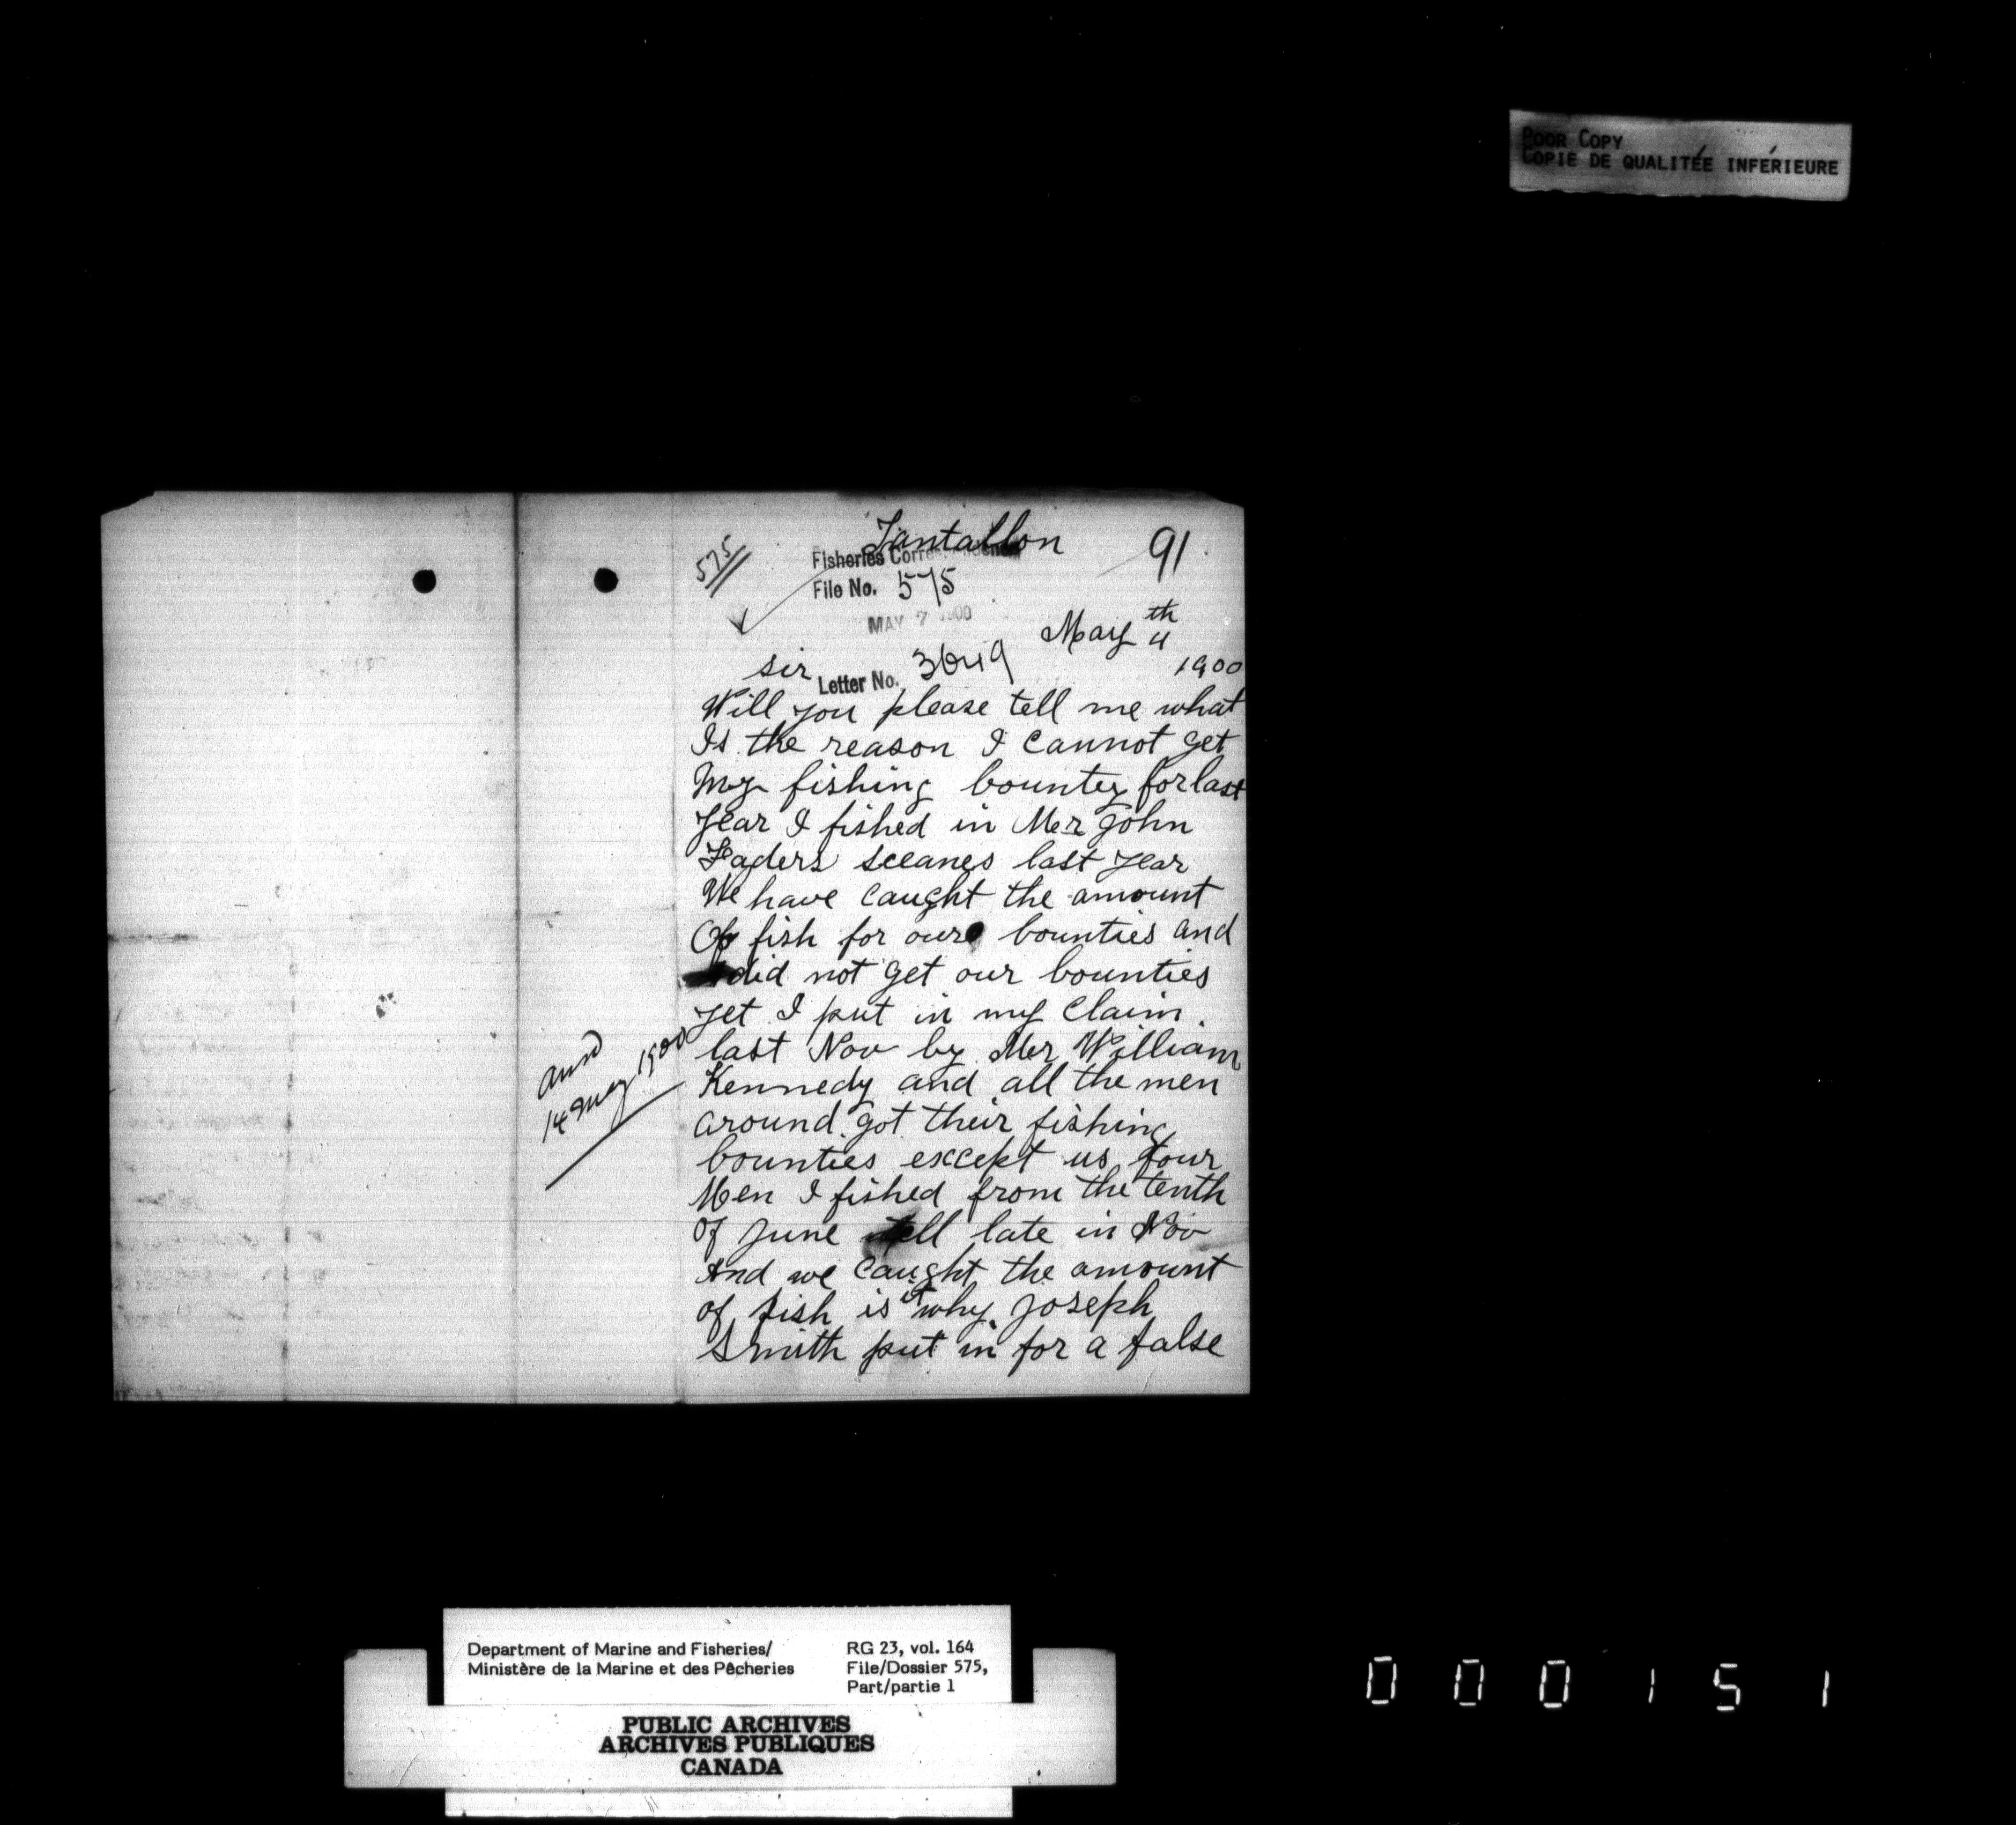 POOR COPY
COPIE DE QUALITÉE INFÉRIEURE
Tantallon
91
575
Fisheries Correspondence
File No. 575
MAY 7 1900
May 4th
1900
sir
Letter No. 3649
Will you please tell me what
Is the reason I cannot get
My fishing bountey for last
year I fished in Mer John
sceanes last year
We have caught the amount
Of fish for our bounties and
did not get our bounties
yet I put in my claim
last Nov by Mer William
Kennedy and all the men
around got their fishing
bounties except us four
Men I fished from the tenth
Of June tell late in Nov
And we caught the amount
of fish is it why Joseph
Smith put in for a false
14 May 1900
Department of Marine and Fisheries/
Ministère de la Marine et des Pêcheries
RG 23, vol. 164
File/Dossier 575,
Part/partie 1
PUBLIC ARCHIVES
ARCHIVES PUBLIQUES
CANADA
000151